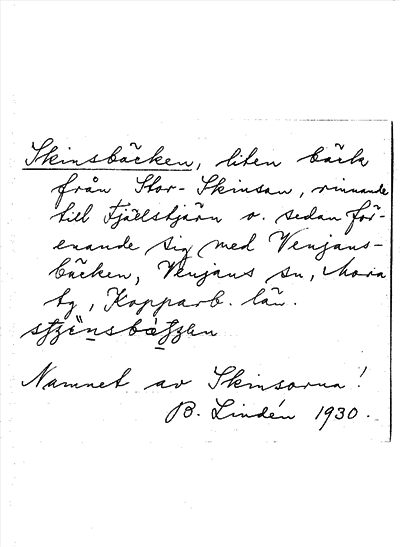 Skinsbäcken, liten bäck
från Stor-Skinsan, rinnande
till Fjällstjärn o. sedan för-
enande sig med Venjans-
bäcken, Venjans sn, Mora
tg, Kopparb. län.
Namnet av Skinsorna!
B. Lindén 1930.